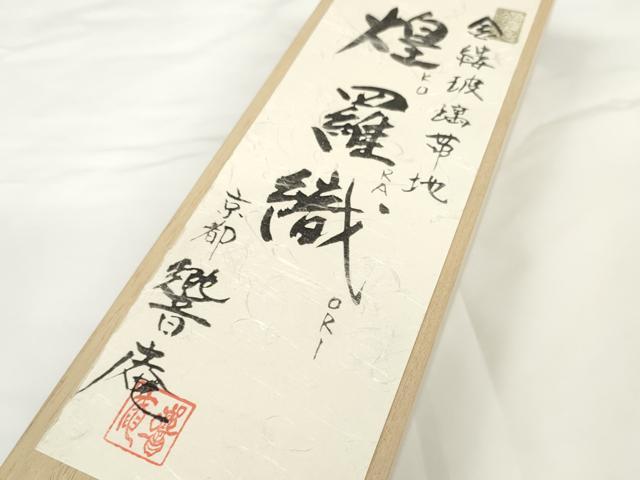 金縷玻璃帯地
煌羅織
KO
RA
ORI
京都
響庵